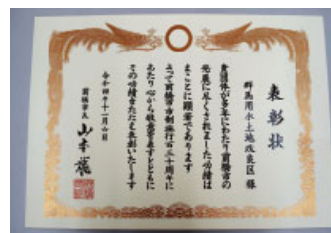 表彰状
群馬用水土地改良区 様
貴団体が多年にわたり前橋市の
発展に尽くされました功績は
まことに顕著であります
よって前橋市制施行百三十周年に
あたり心から敬意を表するとともに
その功績をたたえ表彰いたします
令和四年十一月六日
前橋市長 山本龍